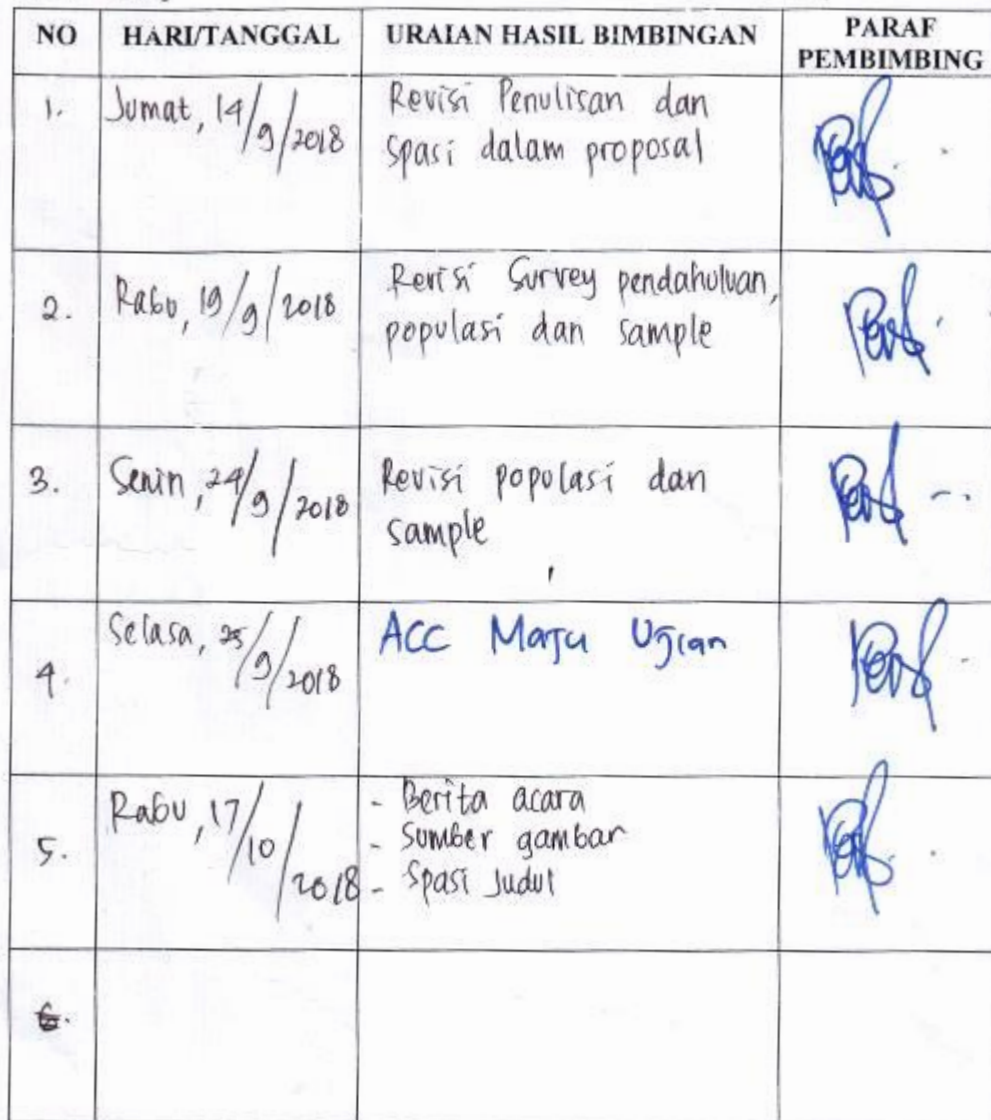 NO HARI/TANGGAL URAIAN HASIL BIMBINGAN PARAF PEMBIMBING
1. Jumat, 14/9/2018 Revisi Penulisan dan
spasi dalam proposal
2. Rabu, 19/9/2018 Revisi Survey pendahuluan,
populasi dan sample
3. Senin, 24/9/2018 Revisi populasi dan
sample
4. Selasa, 25/9/2018 ACC Maju Ujian
5. Rabu, 17/10/2018 - Berita acara
- Sumber gambar
- Spasi Judul
6.